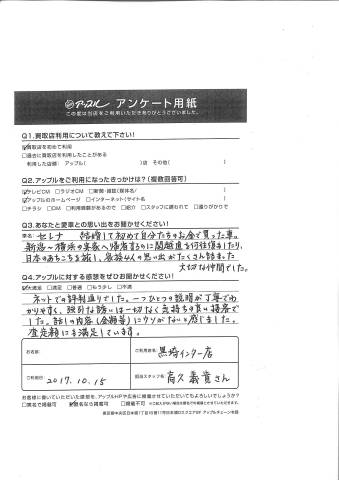 アップル アンケート用紙
この度は当店をご利用いただきありがとうございました。
Q1.買取店利用について教えて下さい!
☑買取店を初めて利用
□過去に買取店を利用したことがある
利用した店舗: アップル( )店 その他( )
Q2.アップルをご利用になったきっかけは?(複数回答可)
☑テレビCM □ラジオCM □新聞・雑誌(媒体名/ )
☑アップルのホームページ □インターネット(サイト名 )
□チラシ □DM □利用経験があるので □紹介 □スタッフに誘われて □通りがかりで
Q3.あなたと愛車との思い出をお聞かせください!
車名 セレナ 結婚して初めて自分たちのお金で買った車。
新潟-横浜の実家へ帰省するのに関越道を何往復もしたり、
日本のあちこちを旅し、家族4人の思い出がたくさん詰まった
大切な仲間でした。
Q4.アップルに対する感想をぜひお聞かせください!
☑大満足 □満足 □普通 □もう少し □不満
ネットでの評判通りでした。一つひとつの説明が丁寧でわ
かりやすく、強引な誘いは一切なく気持ちの良い接客で
した。話の内容(金額等)にウソがないと感じました。
査定額にも満足しています。
お名前
ご利用店名 黒埼インター店
ご利用日 2017.10.15
担当スタッフ名 高久 義貴さん
お客様に書いていただいた感想を、アップルHPや広告に掲載させていただいてもよろしいでしょうか?
□実名で掲載可 ☑匿名なら掲載可 □掲載不可